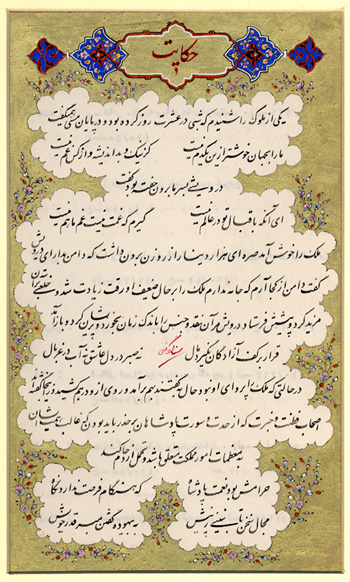 حکایت
یکی از ملوک را شنیدم که شبی در عشرت روز کرده بود و در پایان مستی همی‌گفت
ما را بجهان خوشتر ازین یکدم نیست کز نیک و بد اندیشه و از کس غم نیست
درویشی بسرما برون خفته بود گفت
ای آنکه باقبال تو در عالم نیست گیرم که غمت نیست غم ما هم نیست
ملک را خوش آمد صره‌ای هزار دینار از روزن برون داشت که دامن بدار ای درویش
گفت دامن از کجا آرم که جامه ندارم ملک را بر حال ضعیف او رقت زیادت شد و خلعتی بر آن
مزید کرد و پیشش فرستاد درویش مر آن نقد و جنس را باندک زمان بخورد و پریشان کرد و باز آمد
قرار بر کف آزادگان نگیرد مال نه صبر در دل عاشق نه آب در غربال
در حالتی که ملک را پروای او نبود حال بگفتند بهم برآمد و روی ازو درهم کشید و زینجا گفته‌اند
اصحاب فطنت و خبرت که از حدت و سورت پادشاهان بر حذر باید بودن که غالب همت ایشان
بمعظمات امور مملکت متعلق باشد و تحمل ازدحام عوام نکند
حرامش بود نعمت پادشاه که هنگام فرصت ندارد نگاه
مجال سخن تا نبینی ز پیش به بیهوده گفتن مبر قدر خویش